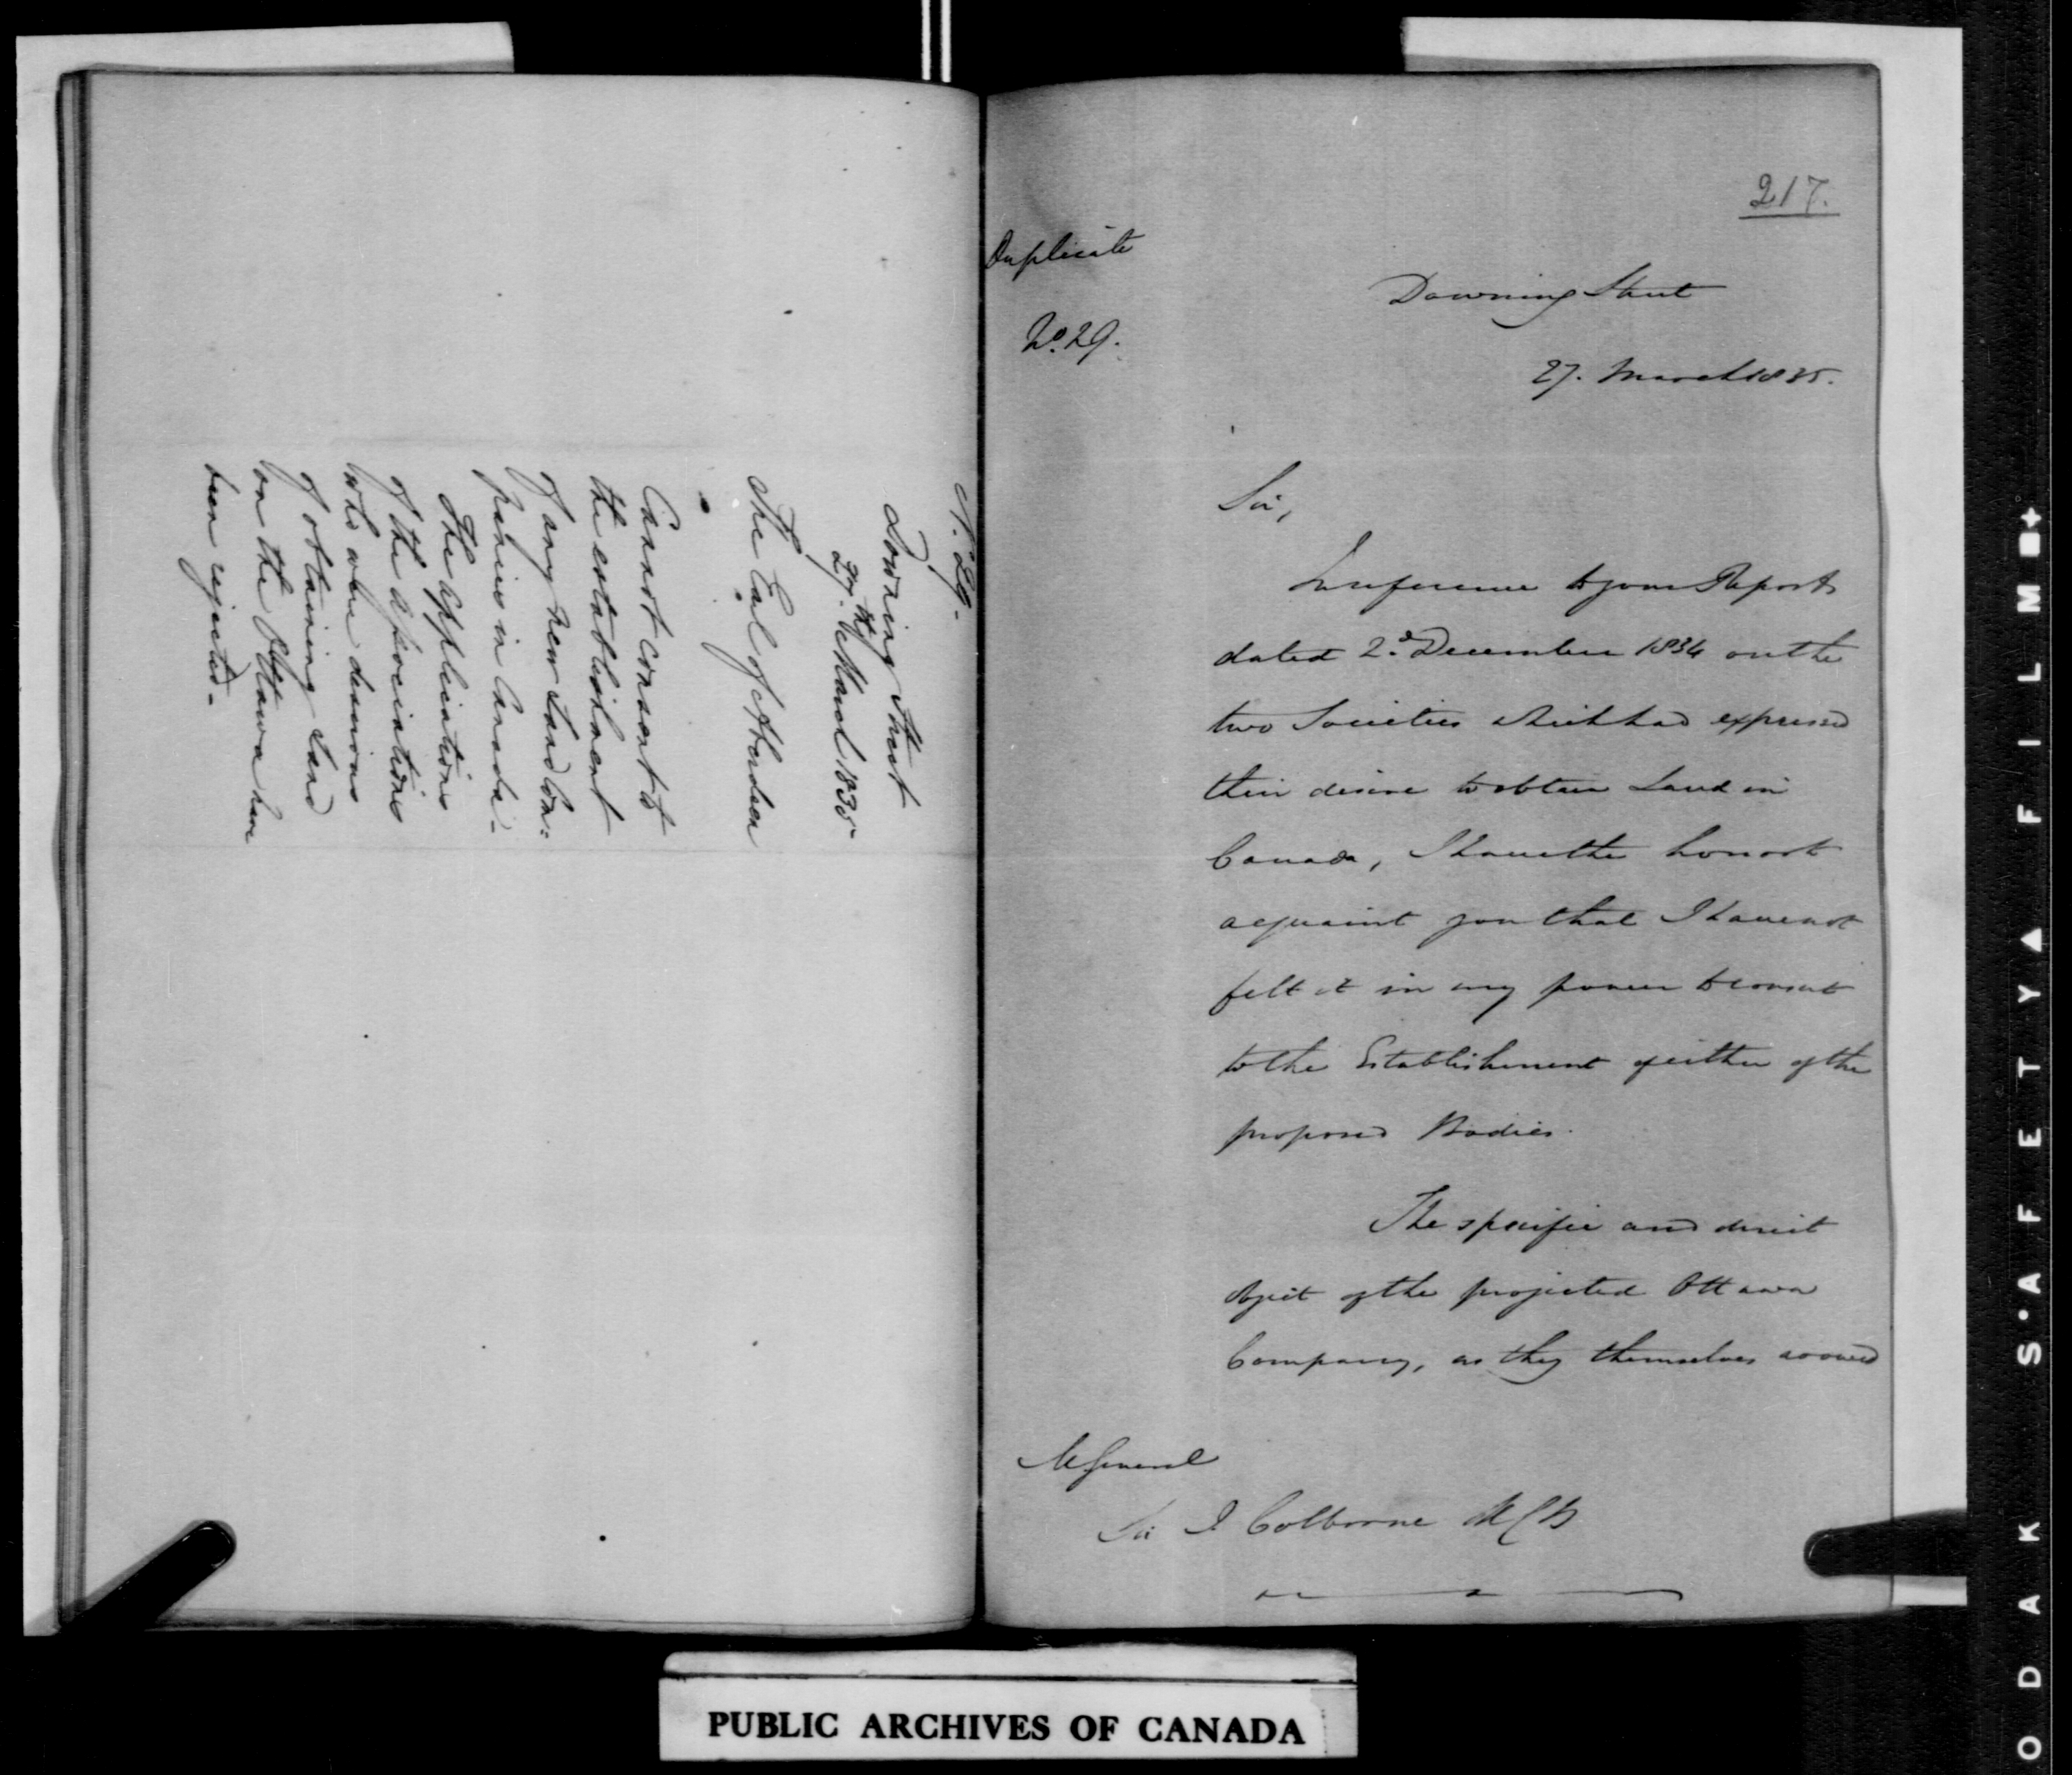 N.o 29.
Downing Street
27.th March 1835
The Earl of Aberdeen
Cannot consent to
the establishment
of any new Land Com:
panies in Canada.
The applications
of the associations
who were desirous
of obtaining Land
on the Ottawa have
been rejected.
217.
Duplicate
No. 29.
Downing Street
27. March 1835.
Sir,
In reference to your Report
dated 2.d December 1834 on the
two Societies which had expressed
their desire to obtain Land in
Canada, I have the honor to
acquaint you that I have not
felt it in my power to consent
to the Establishment of either of the
proposed Bodies.
The specific and direct
object of the projected Ottawa
Company, as they themselves avowed
M General
Sir J Colborne KCB
PUBLIC ARCHIVES OF CANADA
ODAK S'AFETY FILM